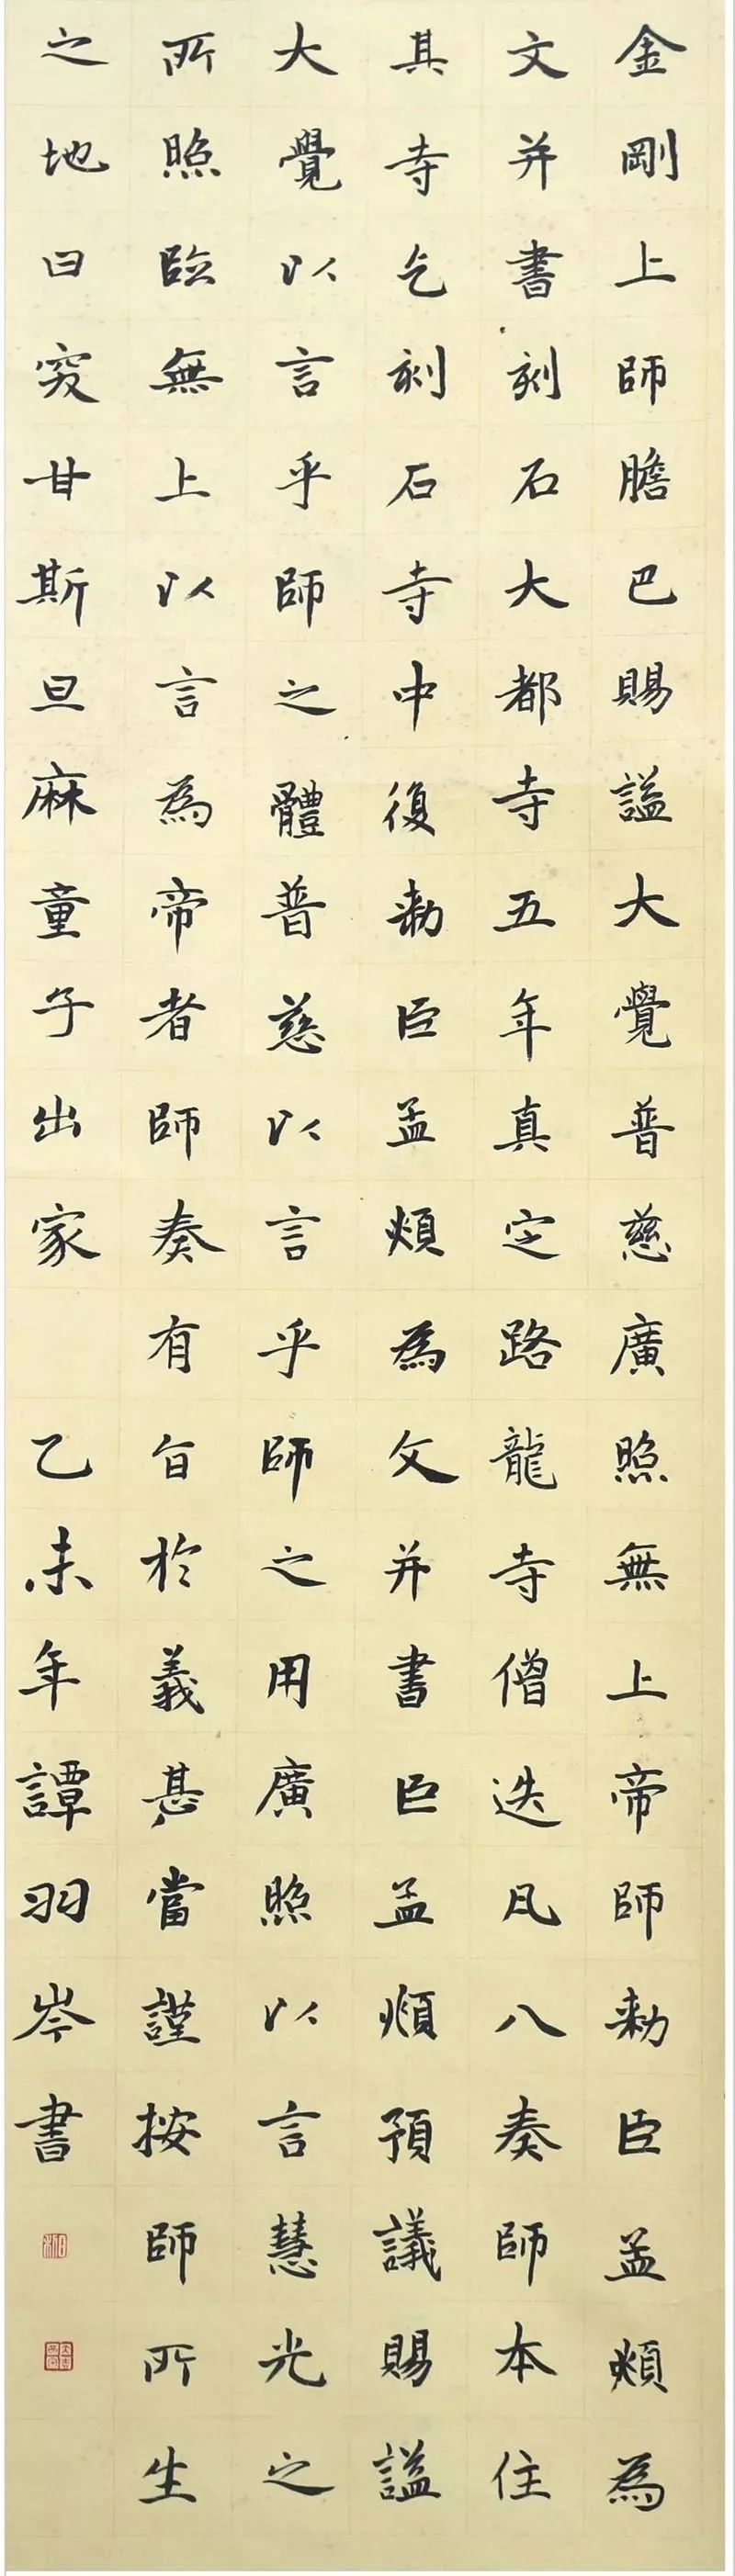 金剛上師膽巴賜謚大覺普慈廣照無上帝師勅臣孟頫為
文并書刻石大都寺五年真定路龍寺僧迭凡八奏師本住
其寺乞刻石寺中復勅臣孟頫為文并書臣孟頫預議賜謚
大覺以言乎師之體普慈以言乎師之用廣照以言慧光之
所照臨無上以言為帝者師奏有旨於義甚當謹按師所生
之地曰突甘斯旦麻童子出家 乙未年譚羽岑書